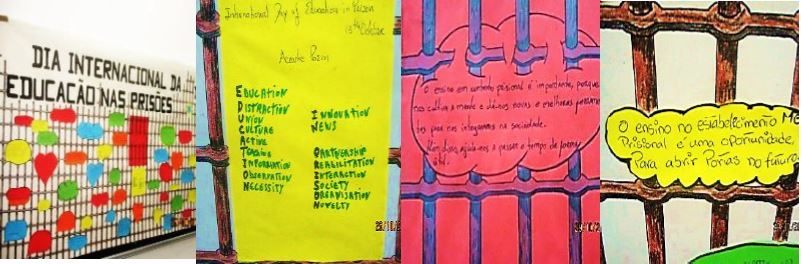 DIA INTERNACIONAL DA
EDUCAÇÃO NAS PRISÕES
International Day of Education in Prison
13th October
Acrostic Poem
EDUCATION
DISTRACTION
UNION
CULTURE
ACTIVE
TEACHING
INFORMATION
OBSERVATION
NECESSITY
INNOVATION
NEWS
PARTNERSHIP
REHABILITATION
INTERACTION
SOCIETY
ORGANISATION
NOVELTY
O ensino em contexto prisional é importante, porque
nos cultiva a mente e dá-nos novas e melhores
para nos integrarmos na sociedade.
Além disso, ajuda-nos a passar o tempo de forma
útil.
O ensino no estabelecimento
Prisional é uma oportunidade,
Para abrir Portas no futuro